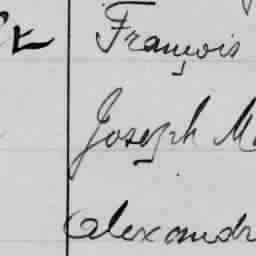 François
Joseph
Alexandr